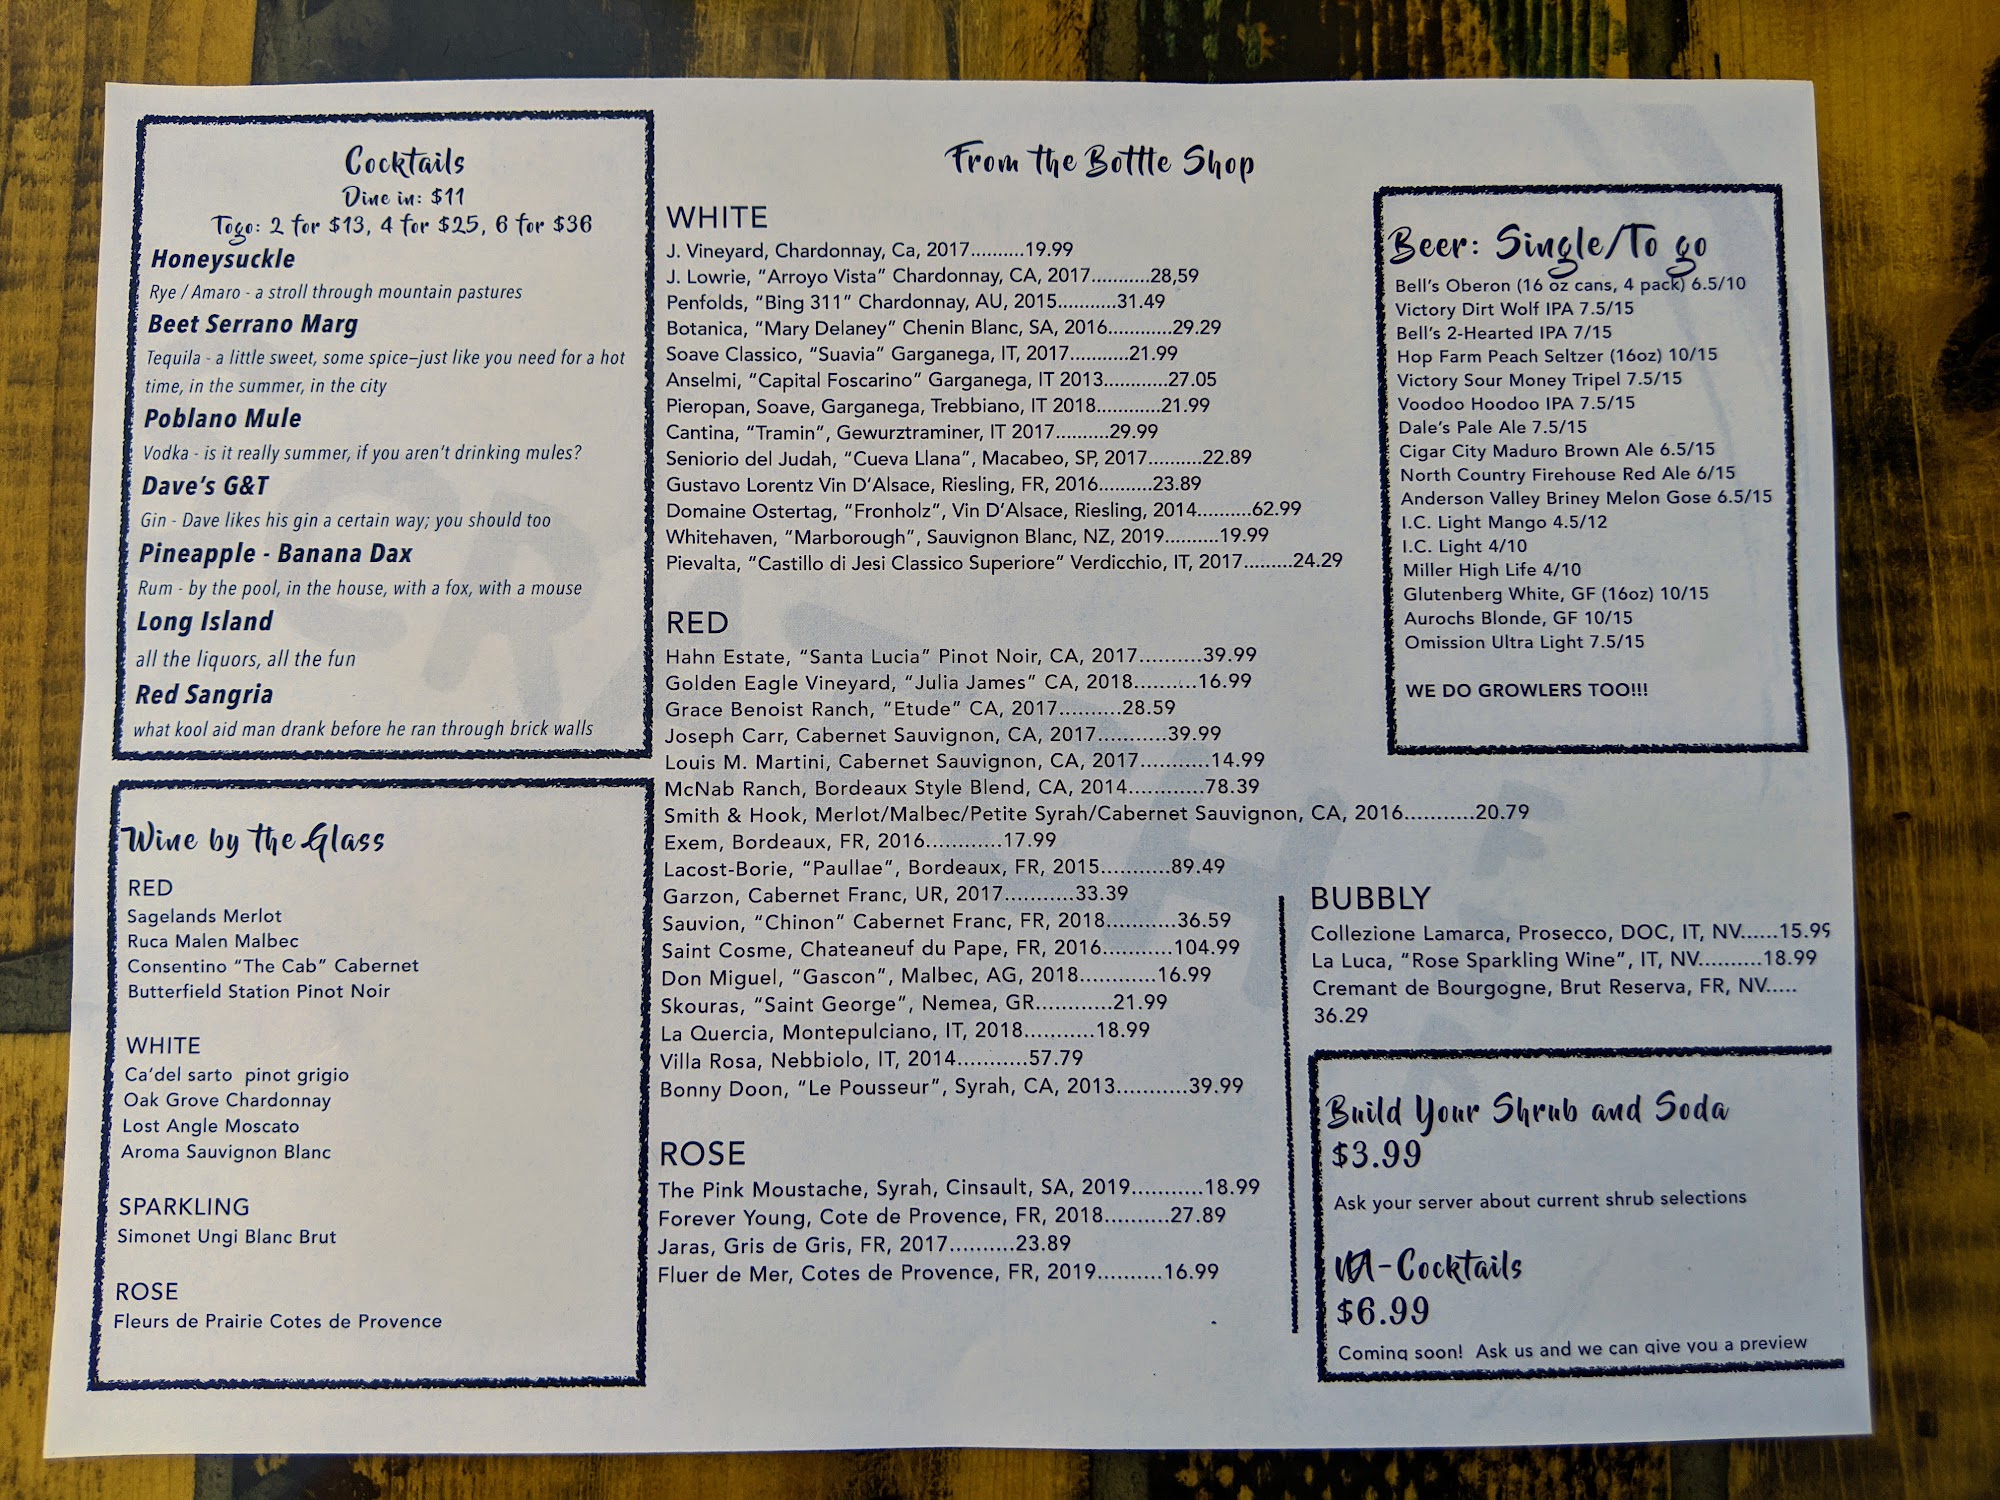 Cocktails
Dine in: $11
Togo: 2 for $13, 4 for $25, 6 for $36
Honeysuckle
Rye / Amaro - a stroll through mountain pastures
Beet Serrano Marg
Tequila - a little sweet, some spice–just like you need for a hot
time, in the summer, in the city
Poblano Mule
Vodka - is it really summer, if you aren't drinking mules?
Dave's G&T
Gin - Dave likes his gin a certain way; you should too
Pineapple - Banana Dax
Rum - by the pool, in the house, with a fox, with a mouse
Long Island
all the liquors, all the fun
Red Sangria
what kool aid man drank before he ran through brick walls
Wine by the Glass
RED
Sagelands Merlot
Ruca Malen Malbec
Consentino "The Cab" Cabernet
Butterfield Station Pinot Noir
WHITE
Ca'del sarto pinot grigio
Oak Grove Chardonnay
Lost Angle Moscato
Aroma Sauvignon Blanc
SPARKLING
Simonet Ungi Blanc Brut
ROSE
Fleurs de Prairie Cotes de Provence
From the Bottle Shop
WHITE
J. Vineyard, Chardonnay, Ca, 2017..........19.99
J. Lowrie, "Arroyo Vista" Chardonnay, CA, 2017...........28,59
Penfolds, "Bing 311" Chardonnay, AU, 2015...........31.49
Botanica, "Mary Delaney" Chenin Blanc, SA, 2016............29.29
Soave Classico, "Suavia" Garganega, IT, 2017...........21.99
Anselmi, "Capital Foscarino" Garganega, IT 2013............27.05
Pieropan, Soave, Garganega, Trebbiano, IT 2018............21.99
Cantina, "Tramin", Gewurztraminer, IT 2017..........29.99
Seniorio del Judah, "Cueva Llana", Macabeo, SP, 2017..........22.89
Gustavo Lorentz Vin D'Alsace, Riesling, FR, 2016..........23.89
Domaine Ostertag, "Fronholz", Vin D'Alsace, Riesling, 2014..........62.99
Whitehaven, "Marborough", Sauvignon Blanc, NZ, 2019..........19.99
Pievalta, "Castillo di Jesi Classico Superiore" Verdicchio, IT, 2017.........24.29
RED
Hahn Estate, "Santa Lucia" Pinot Noir, CA, 2017..........39.99
Golden Eagle Vineyard, "Julia James" CA, 2018..........16.99
Grace Benoist Ranch, "Etude" CA, 2017..........28.59
Joseph Carr, Cabernet Sauvignon, CA, 2017...........39.99
Louis M. Martini, Cabernet Sauvignon, CA, 2017...........14.99
McNab Ranch, Bordeaux Style Blend, CA, 2014............78.39
Smith & Hook, Merlot/Malbec/Petite Syrah/Cabernet Sauvignon, CA, 2016...........20.79
Exem, Bordeaux, FR, 2016............17.99
Lacost-Borie, "Paullae", Bordeaux, FR, 2015...........89.49
Garzon, Cabernet Franc, UR, 2017...........33.39
Sauvion, "Chinon" Cabernet Franc, FR, 2018...........36.59
Saint Cosme, Chateaneuf du Pape, FR, 2016...........104.99
Don Miguel, "Gascon", Malbec, AG, 2018............16.99
Skouras, "Saint George", Nemea, GR............21.99
La Quercia, Montepulciano, IT, 2018...........18.99
Villa Rosa, Nebbiolo, IT, 2014...........57.79
Bonny Doon, "Le Pousseur", Syrah, CA, 2013...........39.99
ROSE
The Pink Moustache, Syrah, Cinsault, SA, 2019...........18.99
Forever Young, Cote de Provence, FR, 2018..........27.89
Jaras, Gris de Gris, FR, 2017..........23.89
Fluer de Mer, Cotes de Provence, FR, 2019..........16.99
Beer: Single/To go
Bell's Oberon (16 oz cans, 4 pack) 6.5/10
Victory Dirt Wolf IPA 7.5/15
Bell's 2-Hearted IPA 7/15
Hop Farm Peach Seltzer (16oz) 10/15
Victory Sour Money Tripel 7.5/15
Voodoo Hoodoo IPA 7.5/15
Dale's Pale Ale 7.5/15
Cigar City Maduro Brown Ale 6.5/15
North Country Firehouse Red Ale 6/15
Anderson Valley Briney Melon Gose 6.5/15
I.C. Light Mango 4.5/12
I.C. Light 4/10
Miller High Life 4/10
Glutenberg White, GF (16oz) 10/15
Aurochs Blonde, GF 10/15
Omission Ultra Light 7.5/15
WE DO GROWLERS TOO!!!
BUBBLY
Collezione Lamarca, Prosecco, DOC, IT, NV......15.99
La Luca, "Rose Sparkling Wine", IT, NV..........18.99
Cremant de Bourgogne, Brut Reserva, FR, NV.....
36.29
Build Your Shrub and Soda
$3.99
Ask your server about current shrub selections
NA-Cocktails
$6.99
Coming soon! Ask us and we can give you a preview